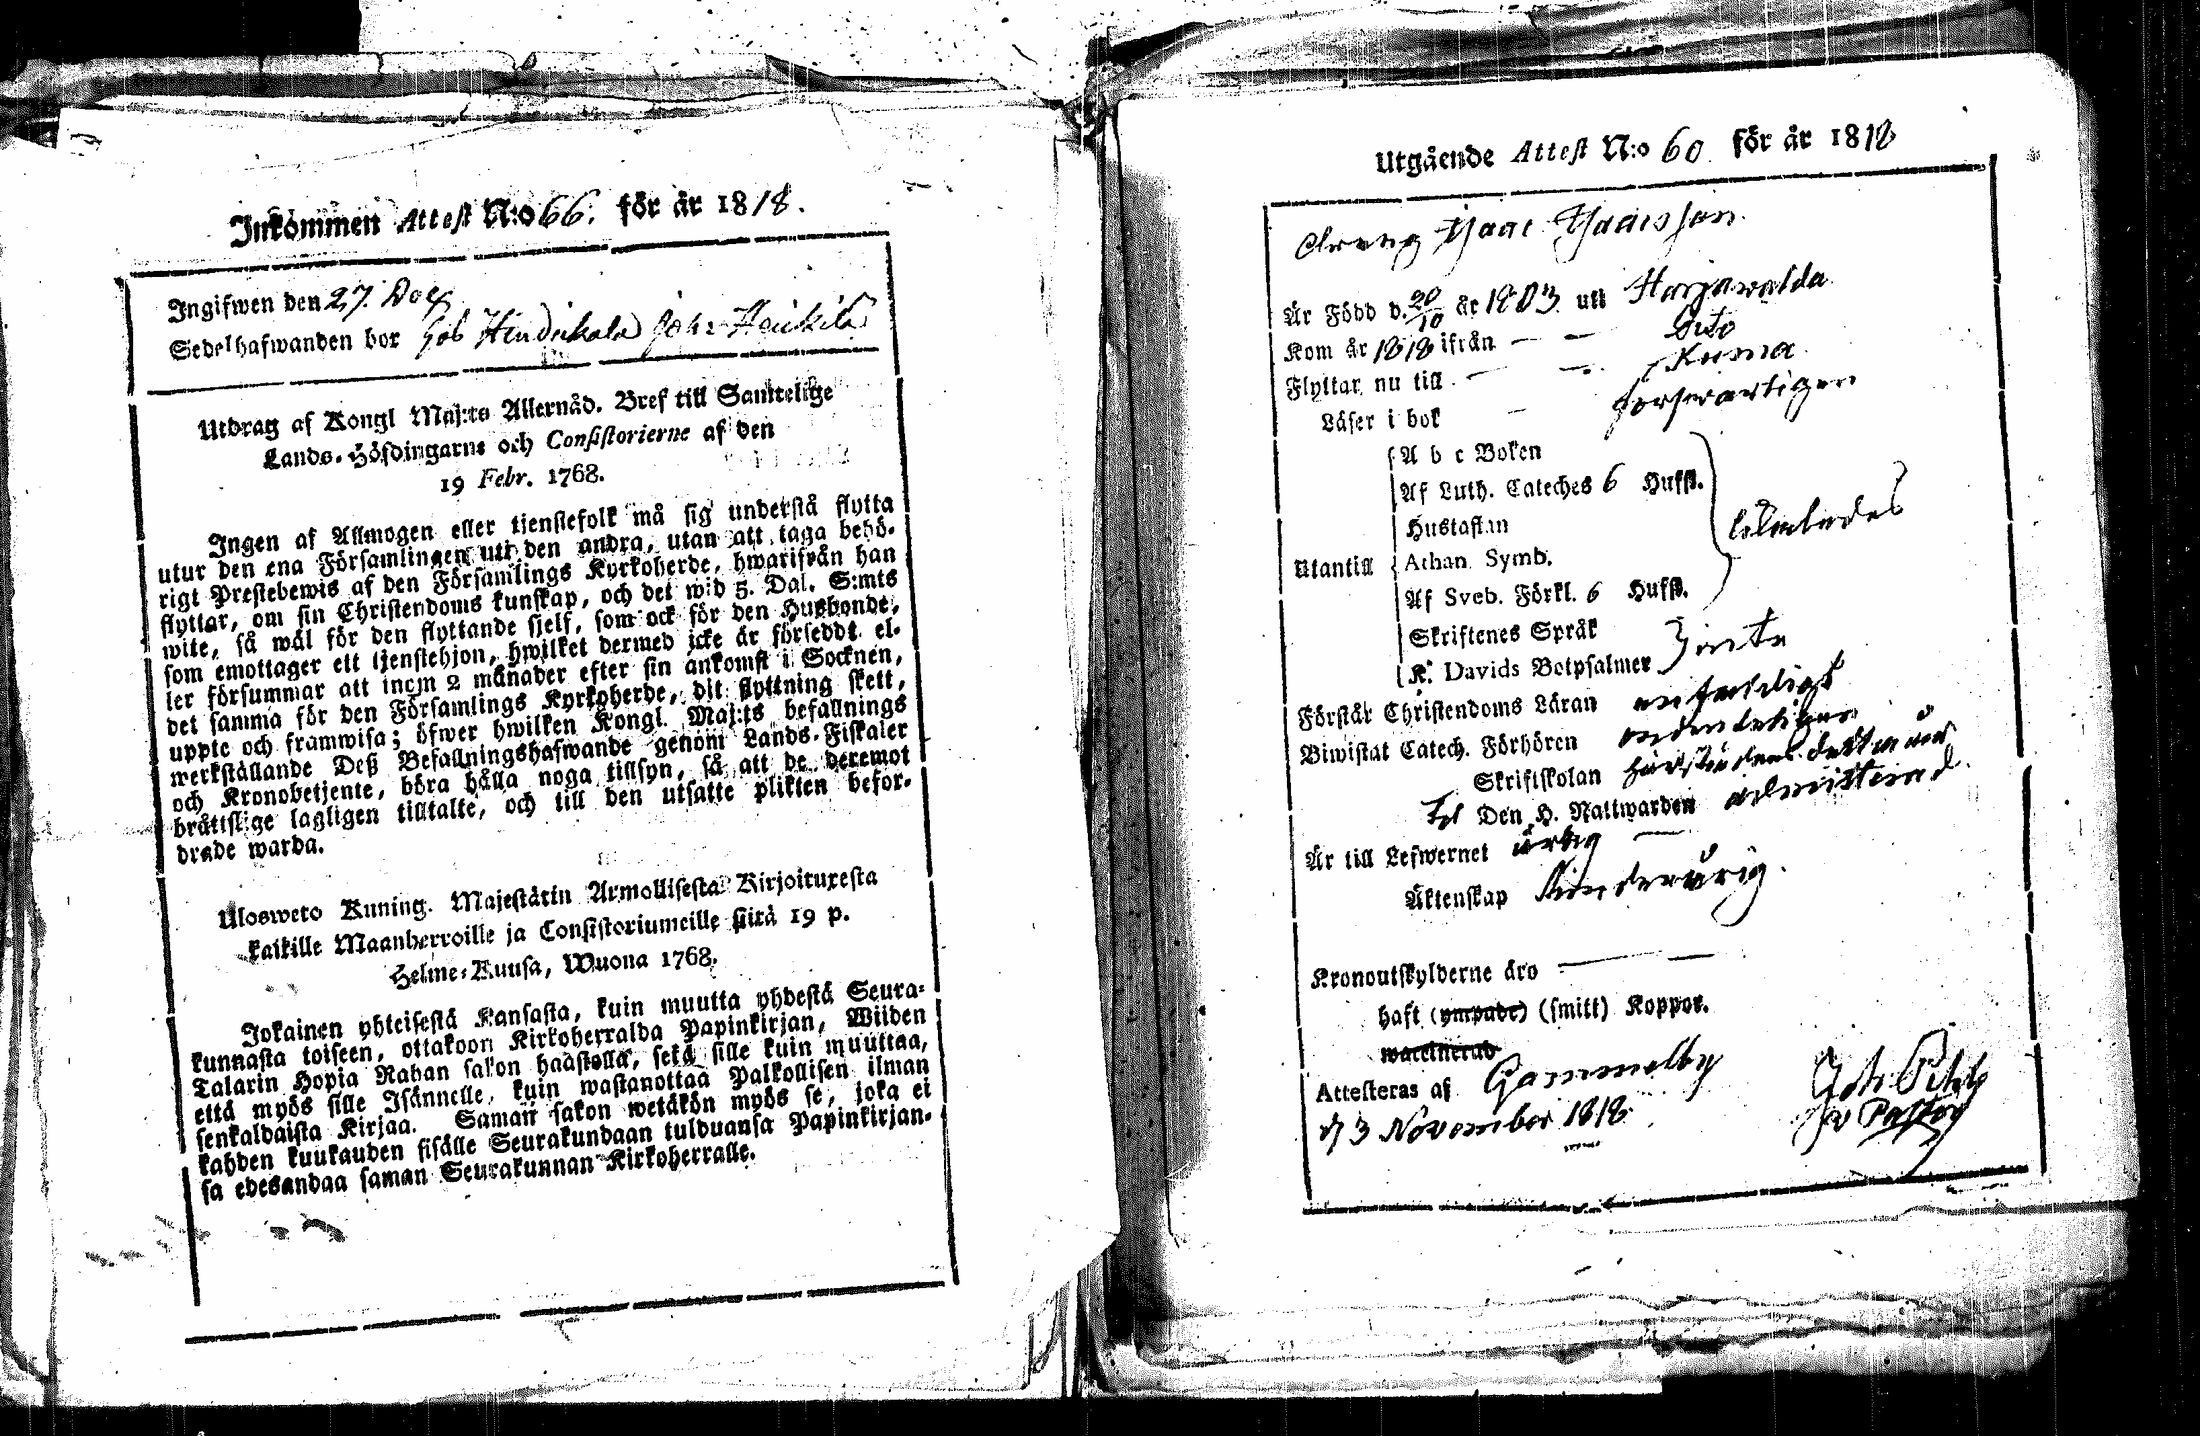 Inkommen Attest N:o 66. för år 1818.
Ingifwen den 27. Dec
Sedelhafwanden bor Hindrickala Heickilä
Utdrag af Kongl Maj:ts Allernåd. Bref till Samtelige
Lands-Höfdingarne och Consistorierne af den
19 Febr. 1768.
Ingen af Allmogen eller tienstefolk må sig understå flytta
utur den ena Församlingen uti den andra, utan att taga behö-
rigt Prestebewis af den Församlings Kyrkoherde, hwarifrån han
flyttar, om sin Christendoms kunskap, och det wid 5. Dal. S:mts
wite, så wäl för den flyttande sjelf, som ock för den Husbonde,
som emottager ett tjenstehjon, hwilket dermed icke är försedt. el-
ler försummar att inom 2 månader efter sin ankomst i Socknen,
det samma för den Församlings Kyrkoherde, dit flyttning skett,
uppte och framwisa; öfwer hwilken Kongl. Maj:ts befallnings
werkställande Deß Befallningshafwande genom Lands-Fiskaler
och Kronobetjente, böra hålla noga tillsyn, så att de deremot
bråttslige lagligen tilltalte, och till den utsatte plikten befor-
drade warda.
Ulosweto Kuning. Majestätin Armollisesta Kirjoituxesta
kaikille Maanherroille ja Consistoriumeille siitä 19 p.
Helme-Kuusa, Wuona 1768.
Jokainen yhteisestä Kansasta, kuin muutta yhdestä Seura-
kunnasta toiseen, ottakoon Kirkoherralda Papinkirjan, Wiiden
Talarin Hopia Rahan sakon haastolla, sekä sille kuin muuttaa,
että myös sille Isännelle, kuin wastanottaa Palkollisen ilman
senkaldaista Kirjaa. Saman sakon wetäkön myös se, joka ei
kahden kuukauden sisälle Seurakundaan tulduansa Papinkirjan-
sa edesandaa saman Seurakunnan Kirkoherralle.
Utgående Attest N:o 60 för år 1818
Dreng Isaac Isaacsson
Är Född d. 20/10 år 1803 uti Harjawalda
Kom år 1818 ifrån — — Dito
Flyttar nu till — — Kumo
Läser i bok — förswarligen
A b c Boken
Af Luth. Cateches 6 Hufst.
Hustaflan
Utantill Athan. Symb.
Af Sveb. Förkl. 6 Hufst.
Skriftenes Språk
K. Davids Botpsalmer } Inte
Förstår Christendoms Läran enfaldigt
Biwistat Catech. Förhören ordenteligen
Skriftskolan
Den H. Nattwarden
Är till Lefwernet ärlig —
Äktenskap Minderårig.
Kronoutskylderne äro — —
haft (ympade) (smitt) Koppor.
waccinerad
Attesteras af Gammelby
d 3 November 1818.
Pastor